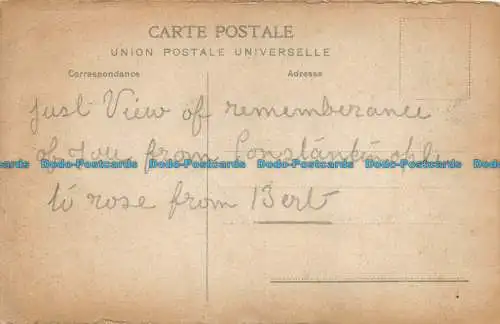 CARTE POSTALE
UNION POSTALE UNIVERSELLE
Correspondance Adresse
just View of rememberance
of you from Constantinople
to rose from Bert
Dodo-Postcards Dodo-Postcards Dodo-Postcards Dodo-Postcards Dodo-Postcards